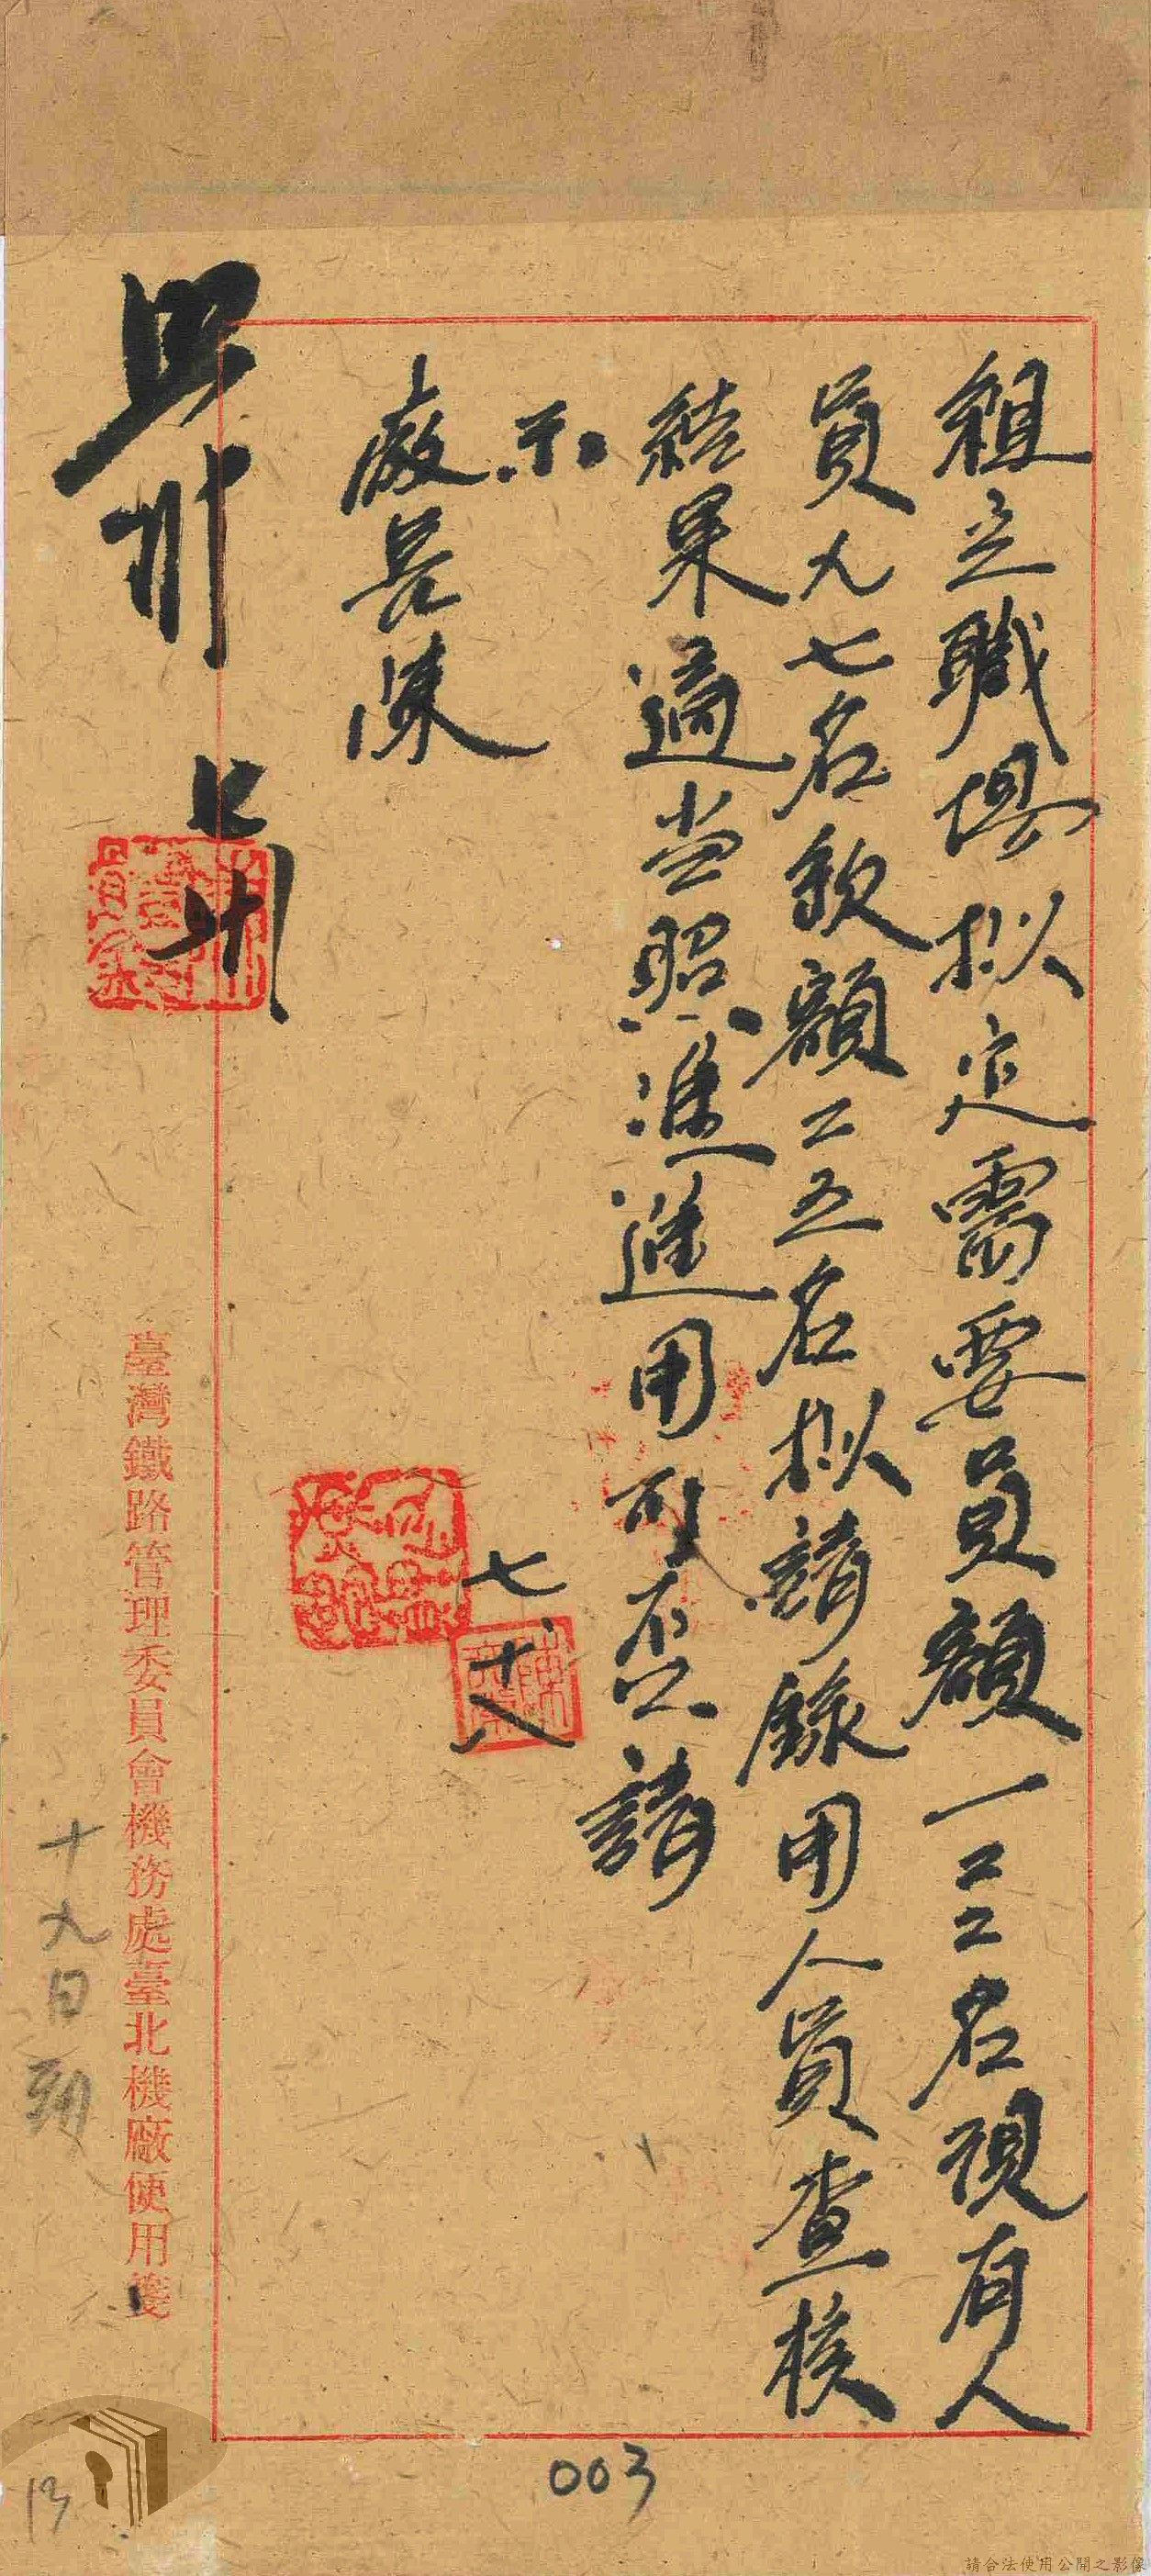 組立職場拟定需要員額一二二名現有人
員九七名欸額二五名拟請錄用人員查核
結果適当照准進用可否请
示
廠長陳
七、十八
照准
七
臺灣鐵路管理委員會機務處臺北機廠便用箋
十九日
003
13
請合法使用公開之影像